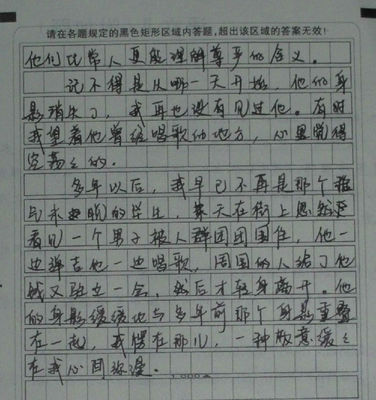 请在各题规定的黑色矩形区域内答题,超出该区域的答案无效!
他们比常人更能理解尊严的含义。
记不得是从哪一天开始，他们的身
影消失了，我再也没有见过他。有时
我望着他曾经唱歌的地方，心里觉得
空荡々的。
多年以后，我早已不再是那个
与永的学生，某天在街上忽然
看见一个男子被人群团团围住，他一
边弹吉他一边唱歌，周围的人给了他
钱又驻立一会，然后才轻身离开。他
的身影缓缓地与多年前那个身影重叠
在一起，我愣在那儿，一种敬意缓々
在我心间弥漫。